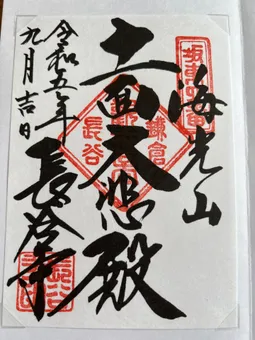 坂東四番
海光山
十一面大悲殿
鎌倉
長谷
長谷寺
令和五年
九月吉日